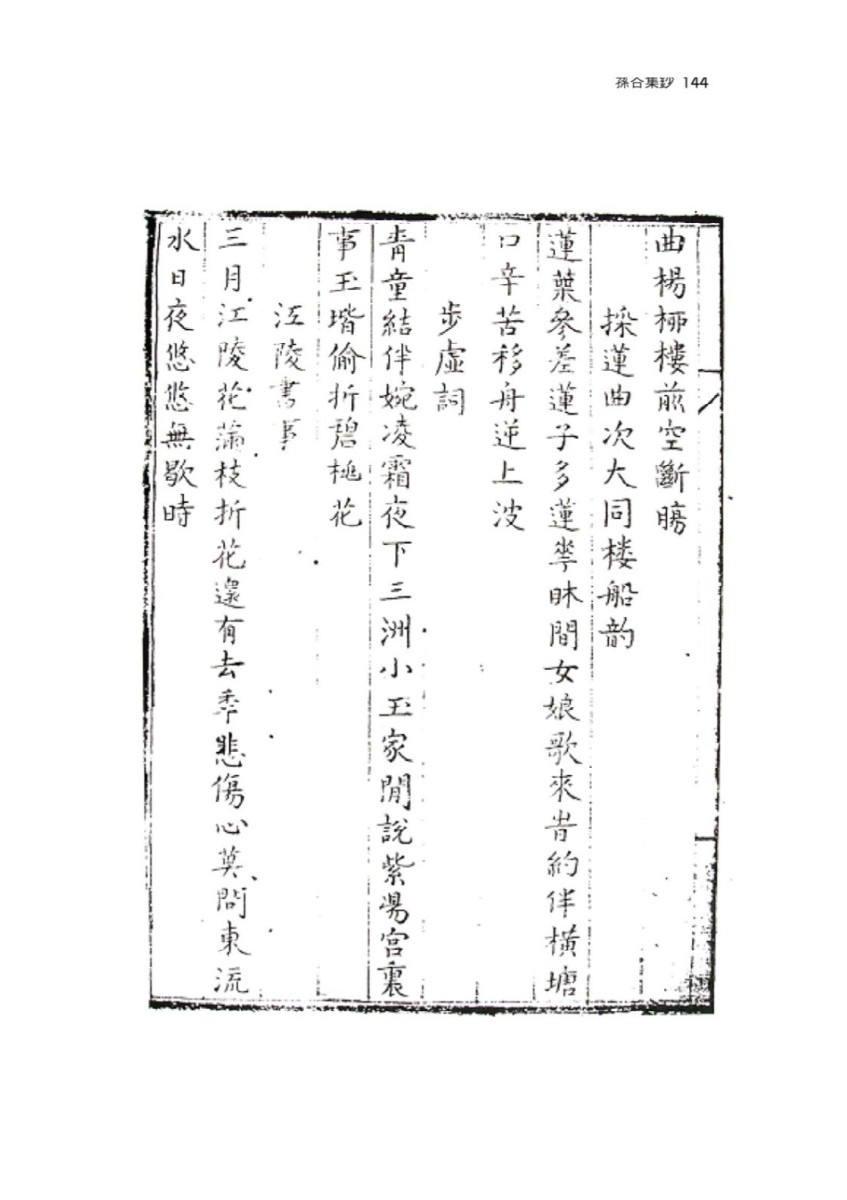 蓀谷集抄 144
曲楊柳樓前空斷腸
採蓮曲次大同楼船韵
蓮葉參差蓮子多蓮花相間女娘歌來時約伴橫塘
口辛苦移舟逆上波
步虛詞
青童結伴婉凌霜夜下三洲小玉家閒說紫陽宮裏
事玉堦偷折碧桃花
江陵書事
三月江陵花滿枝折花還有去年悲傷心莫問東流
水日夜悠悠無歇時